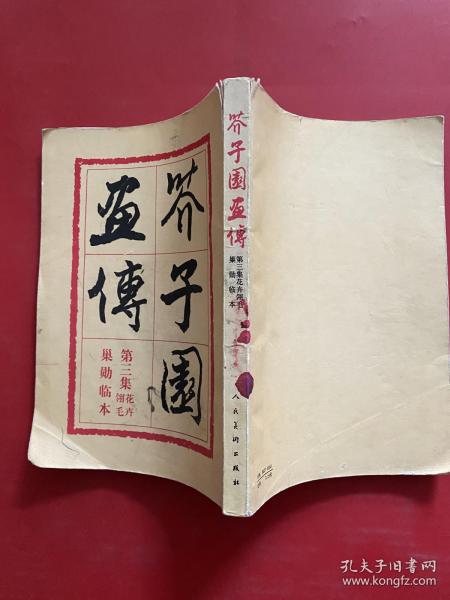 芥子園
畫傳
第三集花卉翎毛
巢勋临本
芥子園畫傳
第三集花卉翎毛
巢勋临本
人民美術出版社
孔夫子旧书网
www.kongfz.com